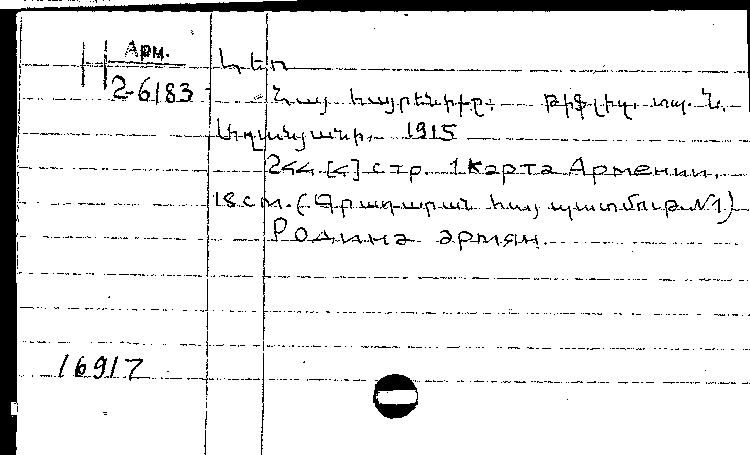 Арм.
2-6183
Լեո
Հայ հայրենիքը: Թիֆլիս, տպ. Ն.
Աղանյանի, 1915
244 [4] стр. 1 карта Армении.
18 см. (Գրադարան հայ պատմութ. №1)
Родина армян.
16917